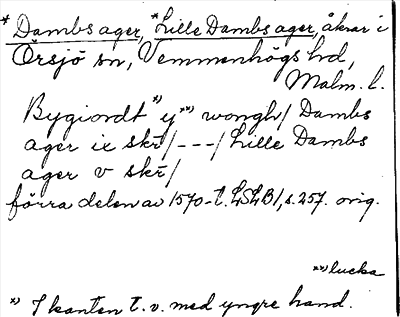 *Dambs ager, *Lille Dambs ager, åkrar i
Örsjö sn, Vemmenhögs hd,
Malm. l.
Bygiordt *) y **) wongh/ Dambs
ager ix skr/ - - - / Lille Dambs
ager v skr/
förra delen av 1570-t. LSLB1, s. 257. orig.
**) lucka
*) I kanten t. v. med yngre hand.